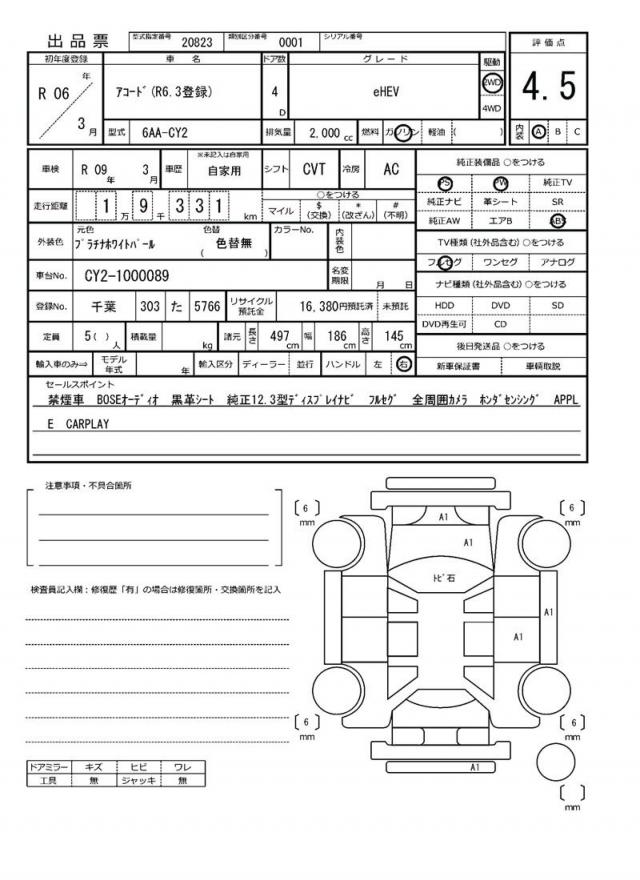 出品票 型式指定番号 20823 類別区分番号 0001 シリアル番号
初年度登録 車名 ドア数 グレード 駆動 評価点
R 06 年 3 月 アコード(R6.3登録) 4 D eHEV 2WD 4WD 4.5
型式 6AA-CY2 排気量 2,000 cc 燃料 ガソリン 軽油 ( ) 内装 A B C
車検 R 09 年 3 月 車歴 ※未記入は自家用 自家用 シフト CVT 冷房 AC 純正装備品 ○をつける
PS PW 純正TV
走行距離 1 万 9 千 3 3 1 km ○をつける
マイル $ (交換) * (改ざん) # (不明)
純正ナビ 革シート SR
純正AW エアB ABS
外装色 元色 プラチナホワイトパール 色替 ( 色替無 ) カラーNo. 内装色
TV種類 (社外品含む) ○をつける
フルセグ ワンセグ アナログ
車台No. CY2-1000089 名変期限 月 日
ナビ種類 (社外品含む) ○をつける
登録No. 千葉 303 た 5766 リサイクル預託金 16,380円預託済 未預託
HDD DVD SD
DVD再生可 CD
定員 5( ) 人 積載量 kg 諸元 長さ 497 cm 幅 186 cm 高さ 145 cm
後日発送品 ○をつける
輸入車のみ⇨ モデル年式 年 輸入区分 ディーラー 並行 ハンドル 左 右
新車保証書 車輌取説
セールスポイント
禁煙車 BOSEオーディオ 黒革シート 純正12.3型ディスプレイナビ フルセグ 全周囲カメラ ホンダセンシング APPL
E CARPLAY
注意事項・不具合箇所
検査員記入欄：修復歴「有」の場合は修復箇所・交換箇所を記入
6 mm
6 mm
A1
A1
トビ石
A1
A1
6 mm
6 mm
A1
mm
ドアミラー キズ ヒビ ワレ
工具 無 ジャッキ 無